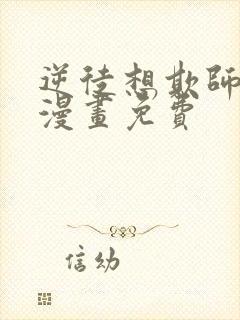 逆徒想欺師
漫畫免費
信幼